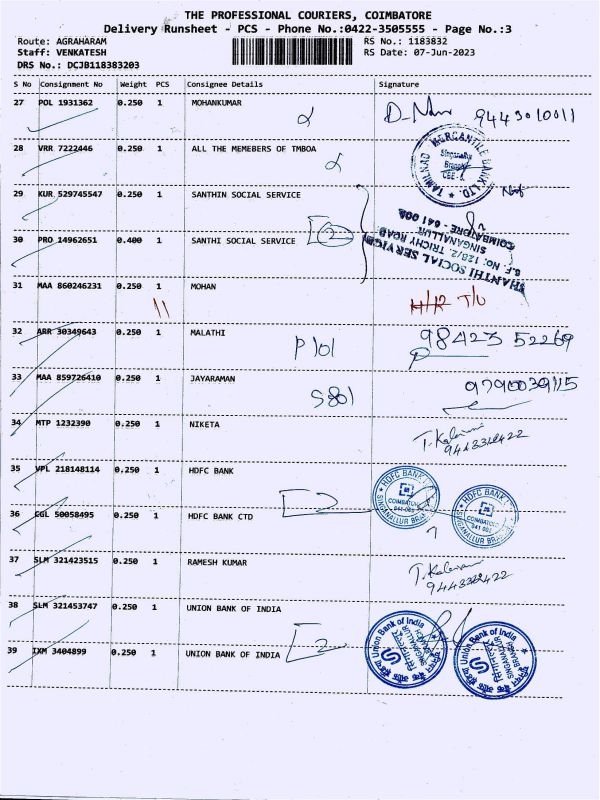 THE PROFESSIONAL COURIERS, COIMBATORE
Delivery Runsheet - PCS - Phone No.:0422-3505555 - Page No.:3
Route: AGRAHARAM RS No.: 1183832
Staff: VENKATESH RS Date: 07-Jun-2023
DRS No.: DCJB118383203
S No Consignment No Weight PCS Consignee Details Signature
27 POL 1931362 0.250 1 MOHANKUMAR 9443010011
28 VRR 7222446 0.250 1 ALL THE MEMEBERS OF TMBOA
TAMILNAD MERCANTILE BANK LTD.
Branch
CBE-
29 KUR 529745547 0.250 1 SANTHIN SOCIAL SERVICE
30 PRO 14962651 0.400 1 SANTHI SOCIAL SERVICE 2
SHANTHI SOCIAL SERVICE
S.F. No: 128/2, TRICHY ROAD
SINGANALLUR
COIMBATORE - 641 005
31 MAA 860246231 0.250 1 MOHAN
32 ARR 30349643 0.250 1 MALATHI P101 98423 52269
33 MAA 859726410 0.250 1 JAYARAMAN S801 9790039115
34 MTP 1232390 0.250 1 NIKETA
35 VPL 218148114 0.250 1 HDFC BANK 2
HDFC BANK
COIMBATORE
641 005
SINGANALLUR
HDFC BANK
COIMBATORE
641 005
SINGANALLUR
36 CGL 50058495 0.250 1 HDFC BANK CTD
37 SLM 321423515 0.250 1 RAMESH KUMAR
38 SLM 321453747 0.250 1 UNION BANK OF INDIA
39 IXM 3404899 0.250 1 UNION BANK OF INDIA 2
Union Bank of India
SINGANALLUR
BRANCH
Union Bank of India
SINGANALLUR
BRANCH